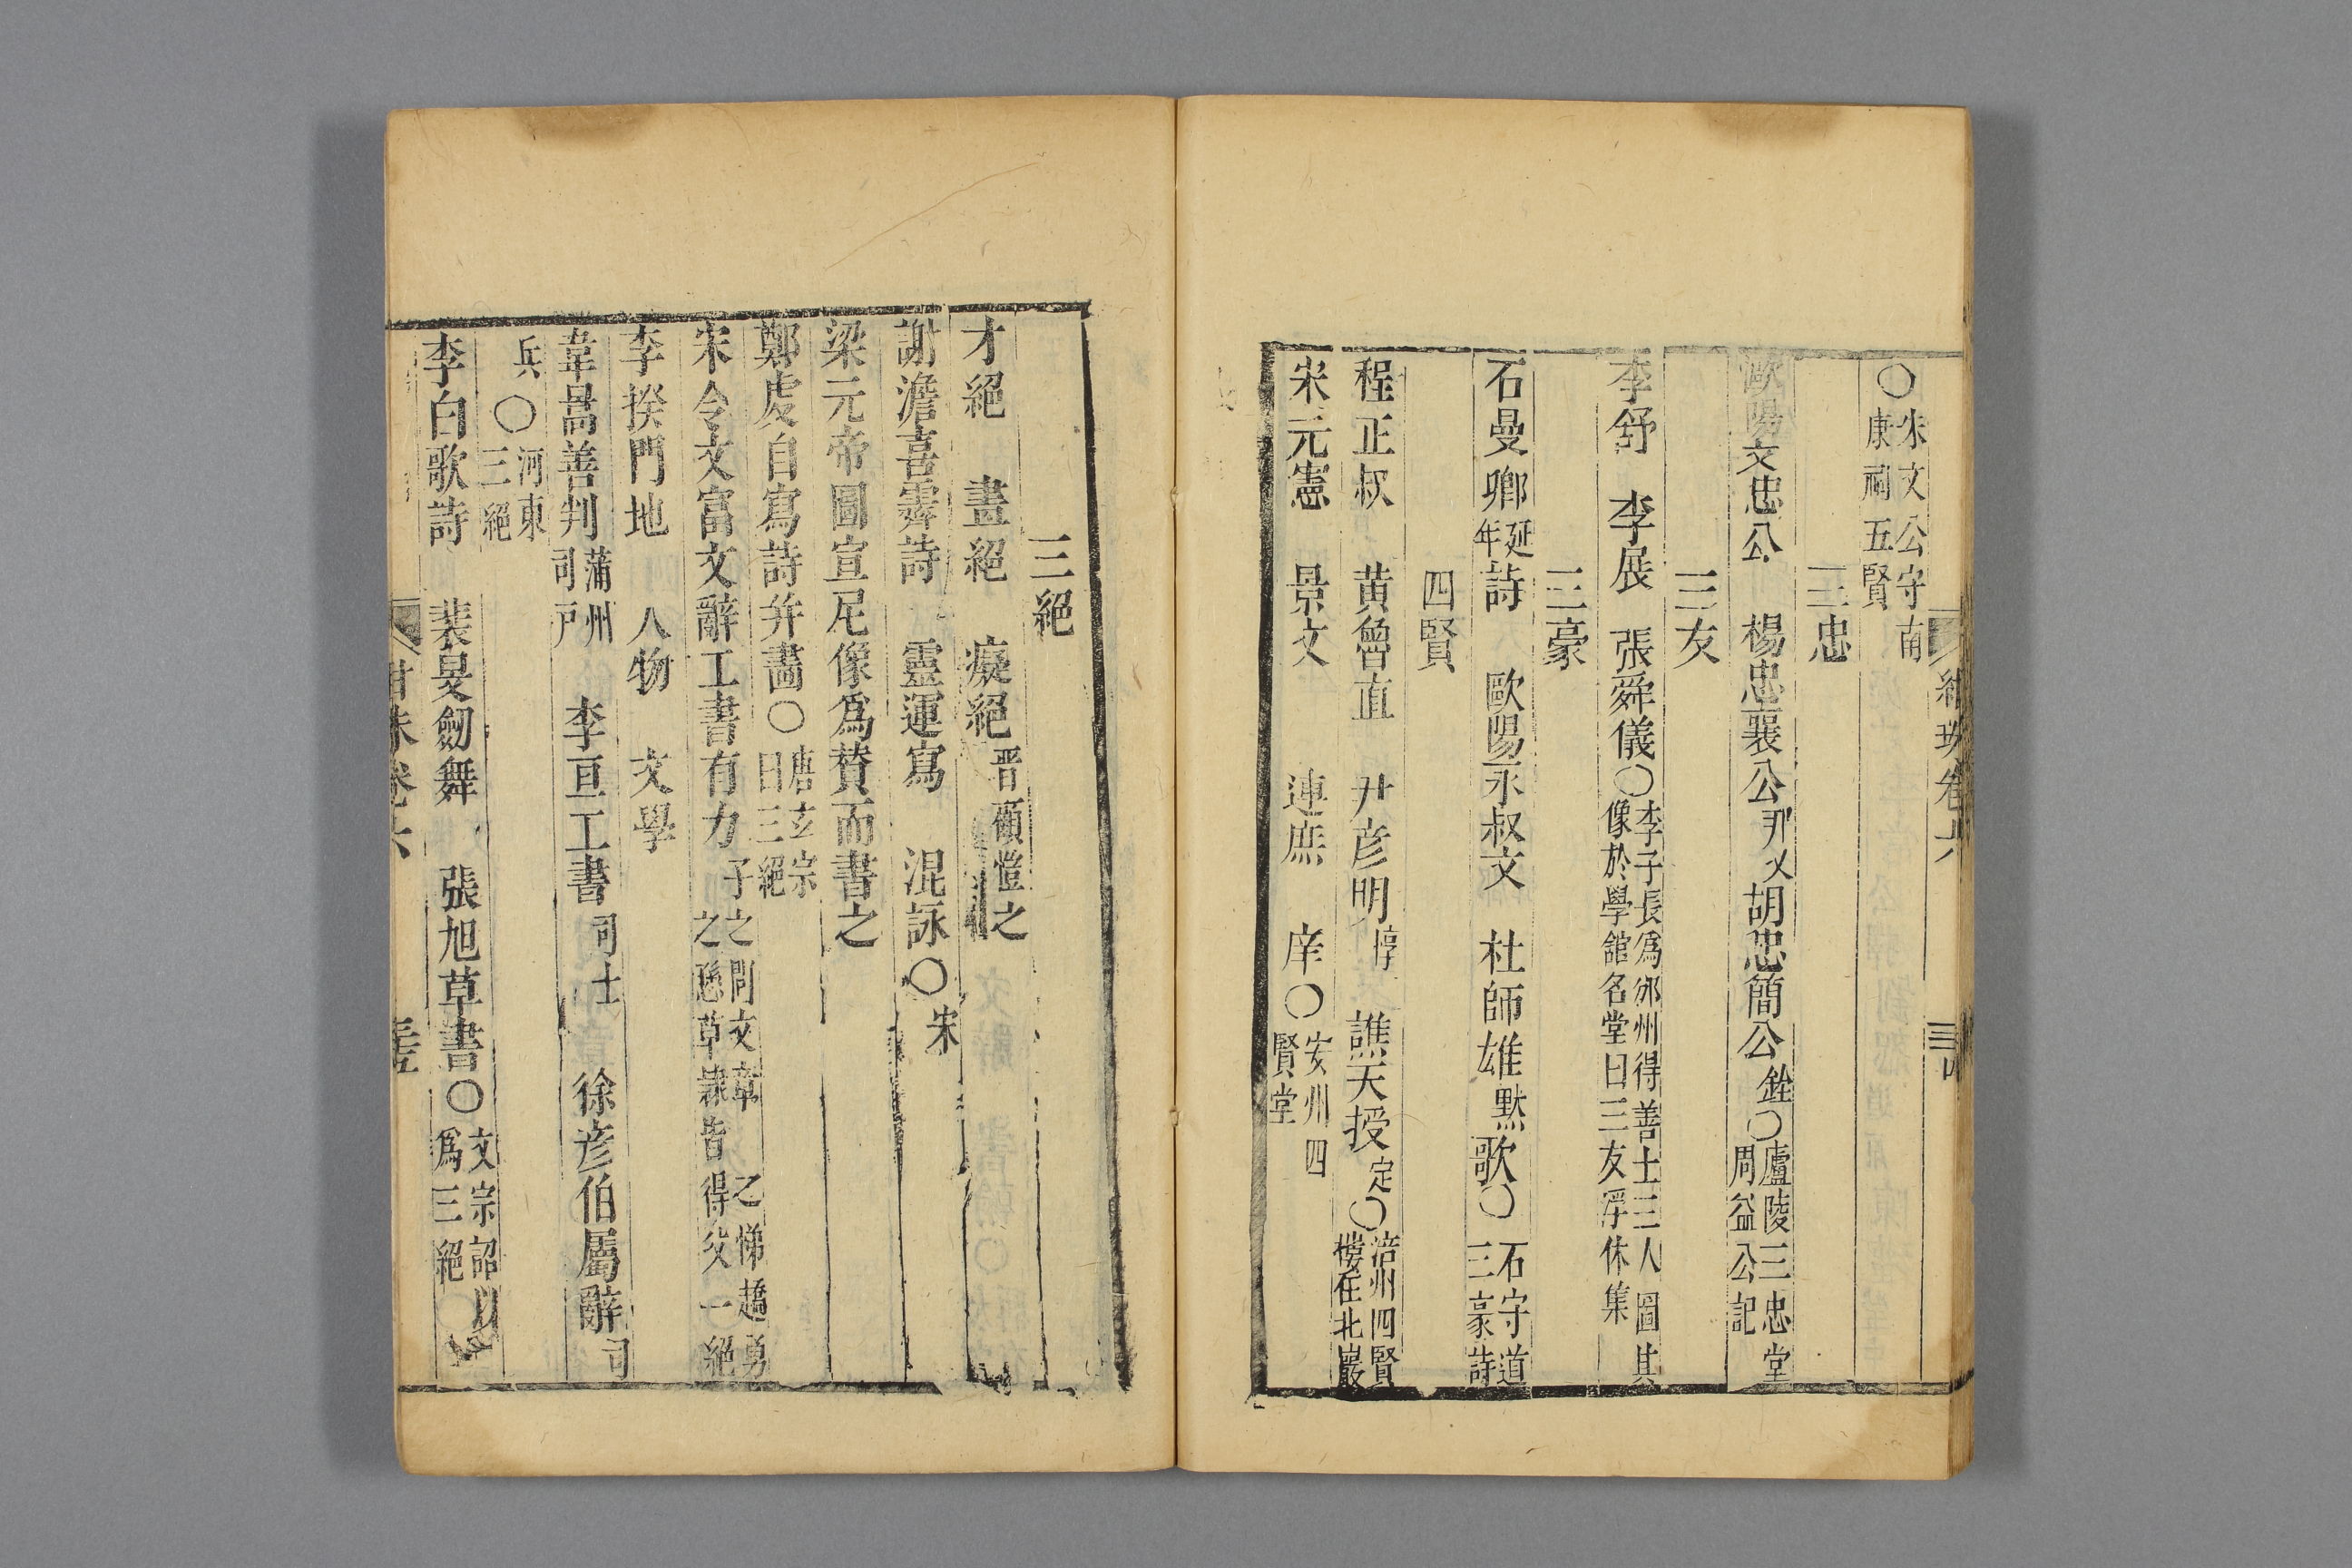 ○朱文公守南康祠五賢
三忠
歐陽文忠公 楊忠襄公邦乂胡忠簡公銓○廬陵三忠堂周益公記
三友
李舒 李展 張舜儀○李子長爲邠州得善士三人圖其像於學館名堂曰三友浮休集
三豪
石曼卿延年詩 歐陽永叔文 杜師雄默歌○石守道三豪詩
四賢
程正叔 黄魯直 尹彦明惇 譙天授定○涪州四賢樓在北巖
宋元憲 景文 連庶 庠○安州四賢堂
三絕
才絕 畫絕 癡絕晋顧愷之
謝澹喜霽詩 靈運寫 混詠○宋
梁元帝圖宣尼像爲賛而書之
鄭虔自寫詩并畵○唐玄宗曰三絕
宋令文富文辭工書有力子之問文章之悌趫勇之愻草隷皆得父一絕
李揆門地 人物 文學
韋暠善判蒲州司戸 李亘工書司士 徐彦伯屬辭司
兵○河東三絕
李白歌詩 裴旻劒舞 張旭草書○文宗詔以爲三絕